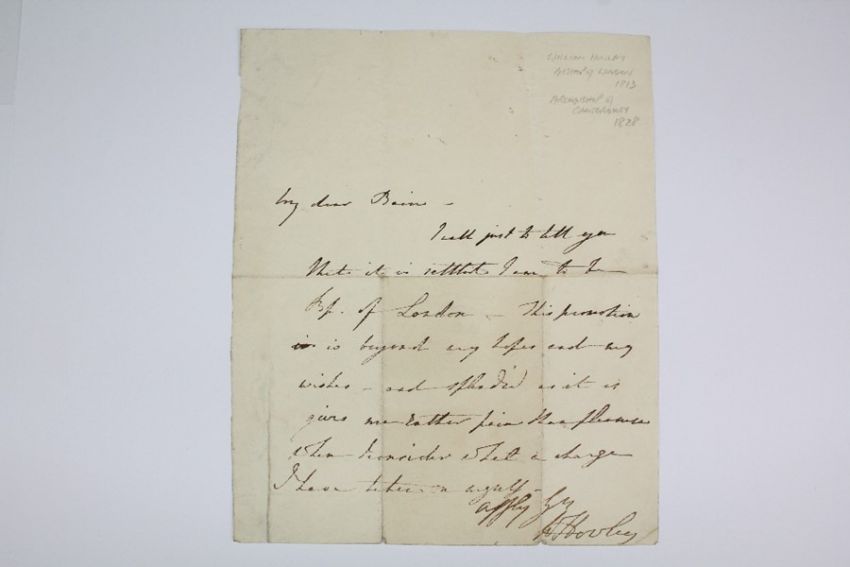 William Howley
Bishop of London
1813
Archbishop of
Canterbury
1828
My dear
I call just to tell you
that it is settled I am to be
Bp. of London – This promotion
is is beyond my hopes and my
wishes – and splendid as it is
gives me rather pain than pleasure
when I consider what a charge
I have taken on myself –
affly yrs
W Howley